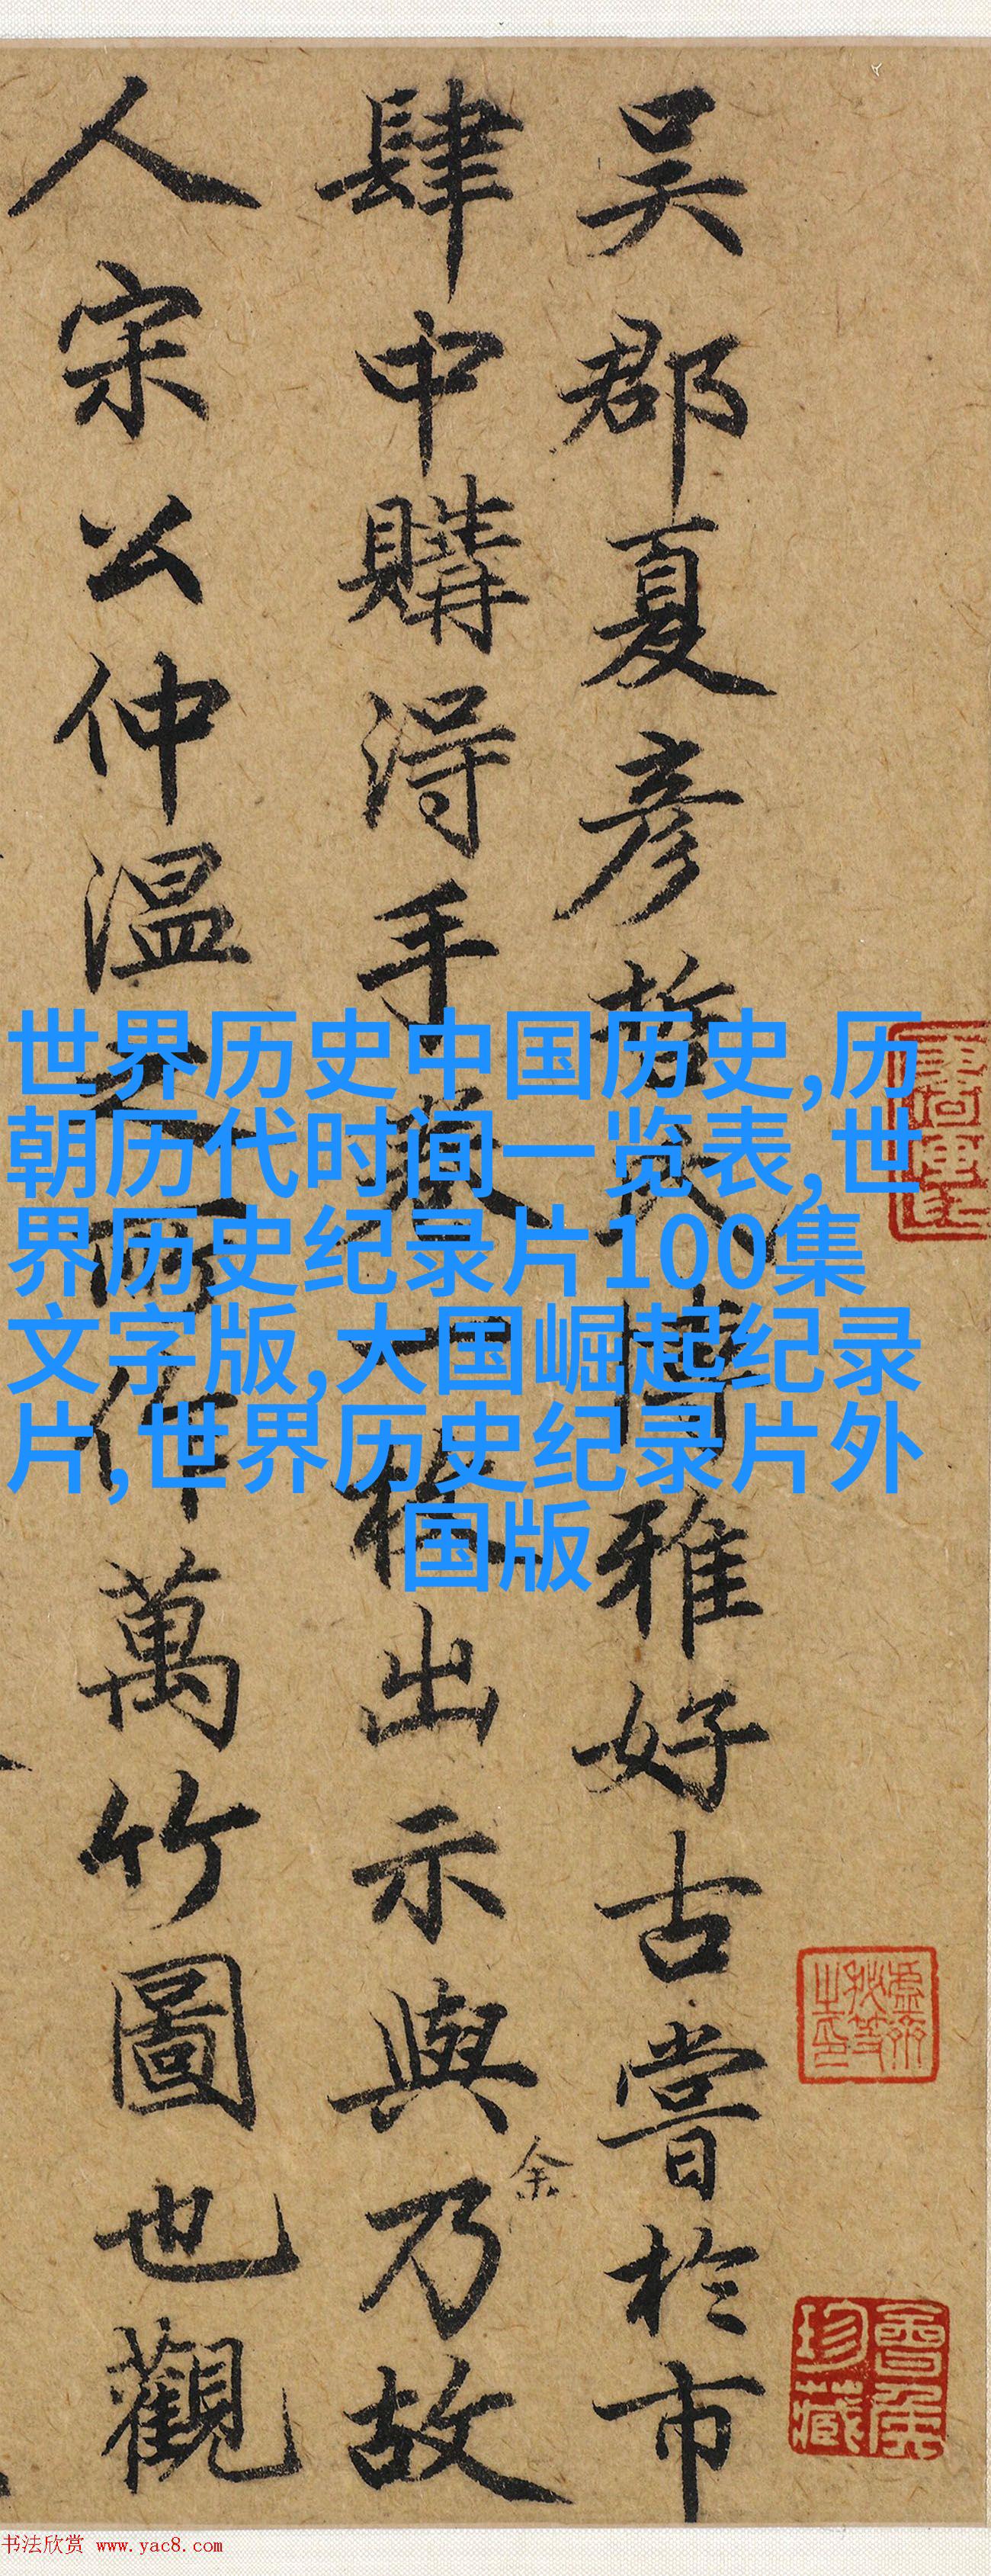 世界历史中国历史,历
朝历代时间一览表,世
界历史纪录片100集
文字版,大国崛起纪录
片,世界历史纪录片外
国版
吴郡夏彦哲博雅好古嘗於市
肆中購淂手卷一出示與乃故
余
人宋公仲温之所作萬竹圖也觀
珍藏
书法欣赏 www.yac8.com